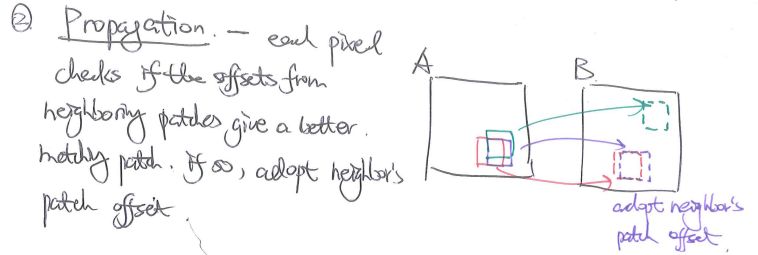 ② Propagation. — each pixel
checks if the offsets from
neighboring patches give a better.
matching patch. if so, adopt neighbor's
patch offset.
A
B
adopt neighbor's
patch offset.